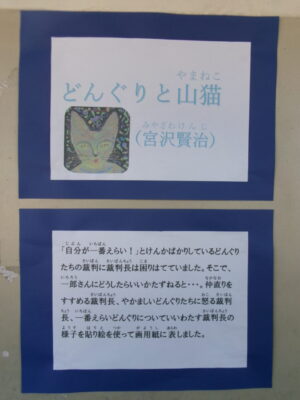 やまねこ
どんぐりと山猫
みやざわけんじ
（宮沢賢治）
じぶん いちばん
「自分が一番えらい！」とけんかばかりしているどんぐり
さいばん さいばんちょう こま
たちの裁判に裁判長は困りはてていました。そこで、
いちろう なかなお
一郎さんにどうしたらいいかたずねると・・・。仲直りを
さいばんちょう おこ さいばん
すすめる裁判長、やかましいどんぐりたちに怒る裁判
ちょう いちばん さいばんちょう
長、一番えらいどんぐりについていいわたす裁判長の
ようす はりえ つか がようし あらわ
様子を貼り絵を使って画用紙に表しました。